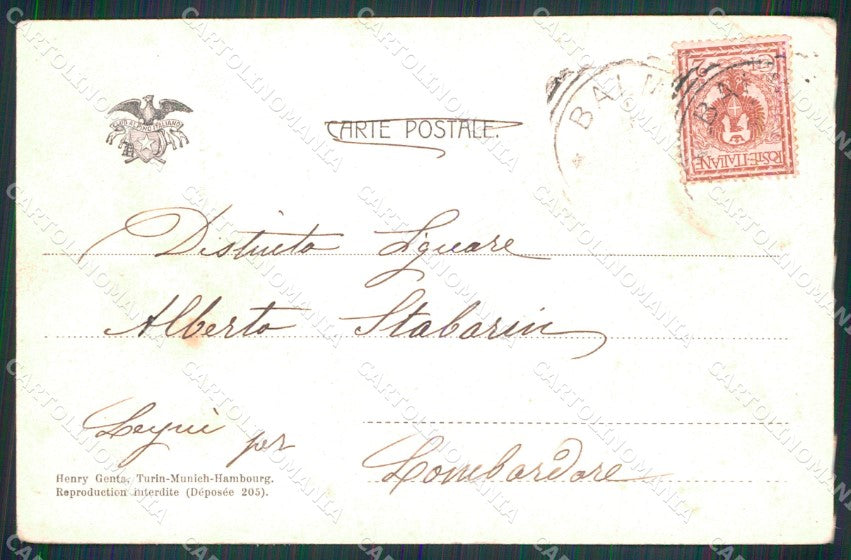 CLUB ALPINO ITALIANO
CARTE POSTALE.
BALM
BAL
POSTE·ITALIANE
2
Distinto Signore
Alberto Stabarin
Leynì per
Lombardore
Henry Genta, Turin-Munich-Hambourg.
Reproduction interdite (Déposée 205).
CARTOLINOMANIA